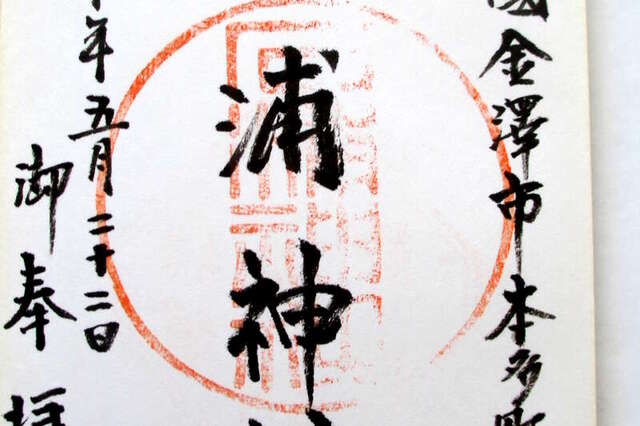 國金澤市本多町
浦神社
年五月二十二日
御奉拝